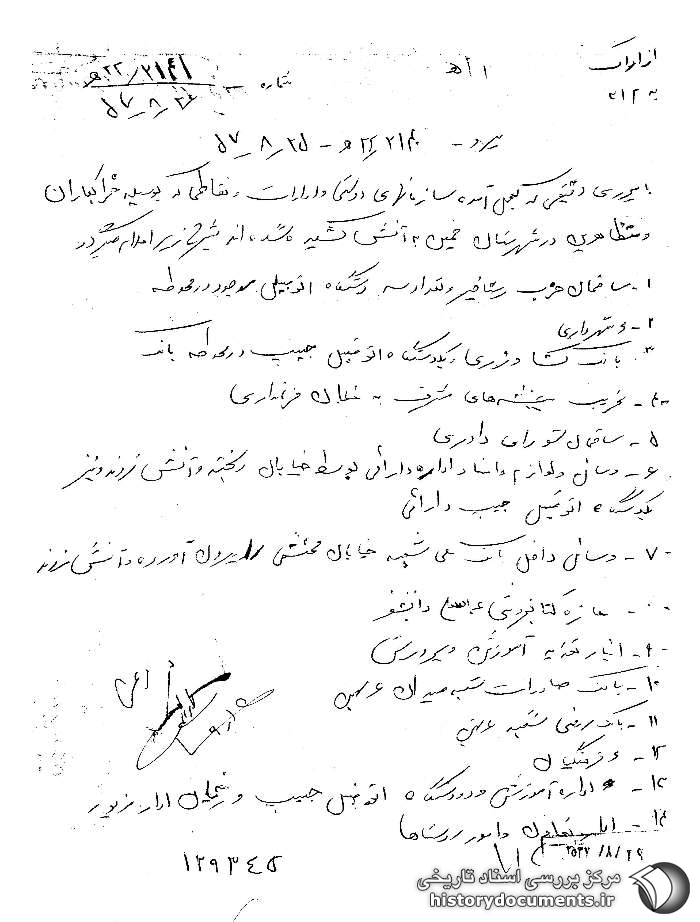 از اراک
به ۳۱۲
۱ اﻫ
شماره ۲۱۴۱/۲۲ﻫ
۵۷/۸/۲۶
پیرو - ۲۲ ﻫ - ۵۷/۸/۲۵
با بررسی دقیقی که بعمل آمده سازمانهای دولتی و ادارات و نقاطی که بوسیله خرابکاران
و متظاهرین در شهرستان خمین به آتش کشیده شده اند بشرح زیر اعلام میگردد
۱- ساختمان حزب رستاخیز و تعداد سه دستگاه اتومبیل موجود در محوطه
۲- شهرداری
۳- بانک کشاورزی و یکدستگاه اتومبیل جیپ در محوطه بانک
۴- تخریب شیشه‌های مشرف به خیابان فرمانداری
۵- ساختمان شورای داوری
۶- وسائل و لوازم و اسناد اداره دارائی بوسط خیابان ریخته و آتش زدند و نیز
یکدستگاه اتومبیل جیپ دارائی
۷- وسائل داخل بانک ملی شعبه خیابان را بیرون آورده و آتش زدند
۸- مغازه کتابفروشی دانشفر
۹- انبار تغذیه آموزش و پرورش
۱۰- بانک صادرات شعبه میدان
۱۱- بانک شعبه
۱۲- فرهنگیان
۱۳- اداره آموزش و دو دستگاه اتومبیل جیپ و اداره مزبور
۱۴- و امور روستاها
۲۵۳۷/۸/۲۹
۱۲۹۳۴۵
مرکز بررسی اسناد تاریخی
historydocuments.ir